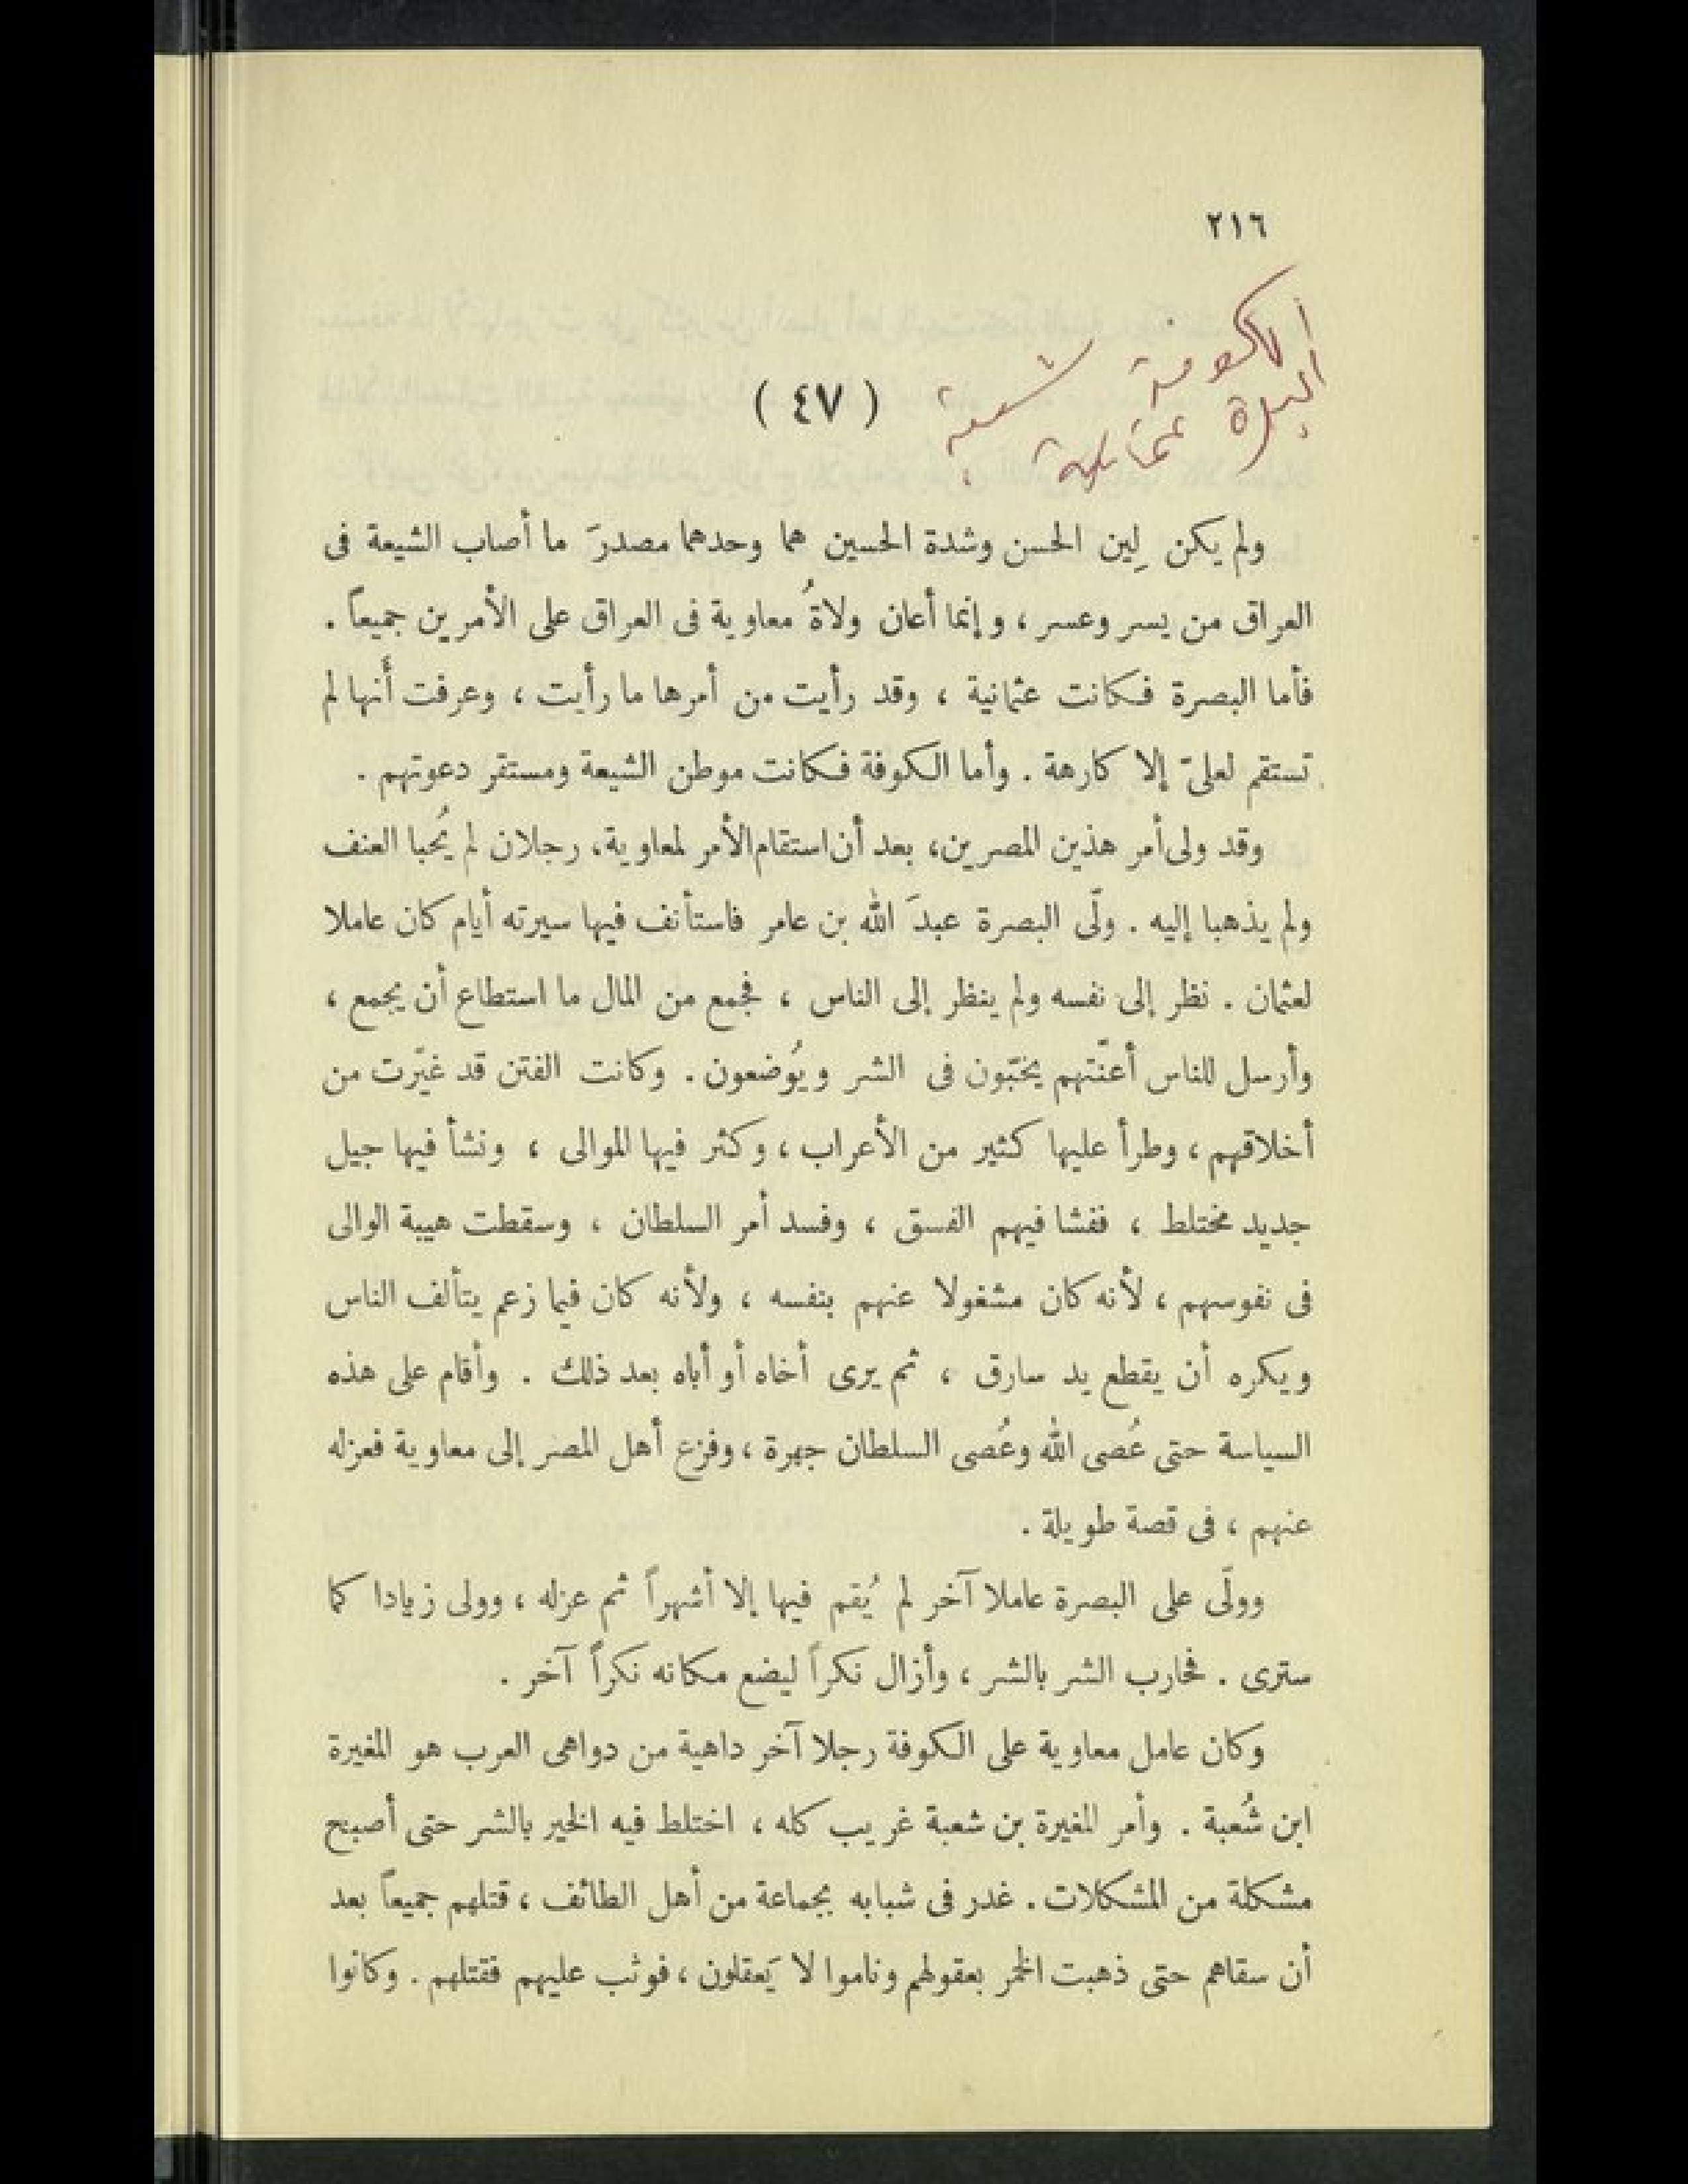 ٢١٦
الكوفة شيعية
البصرة عثمانية
( ٤٧ )
ولم يكن لِين الحسن وشدة الحسين هما وحدهما مصدرَ ما أصاب الشيعة فى
العراق من يسر وعسر ، وإنما أعان ولاةُ معاوية فى العراق على الأمرين جميعاً .
فأما البصرة فكانت عثمانية ، وقد رأيت من أمرها ما رأيت ، وعرفت أنها لم
تستقم لعلىّ إلا كارهة . وأما الكوفة فكانت موطن الشيعة ومستقر دعوتهم .
وقد ولى أمر هذين المصرين، بعد أن استقام الأمر لمعاوية، رجلان لم يُحبا العنف
ولم يذهبا إليه . ولّى البصرة عبدَ الله بن عامر فاستأنف فيها سيرته أيام كان عاملا
لعثمان . نظر إلى نفسه ولم ينظر إلى الناس ، فجمع من المال ما استطاع أن يجمع ،
وأرسل للناس أعنّتهم يخبّون فى الشر ويُوضعون . وكانت الفتن قد غيّرت من
أخلاقهم ، وطرأ عليها كثير من الأعراب ، وكثر فيها الموالى ، ونشأ فيها جيل
جديد مختلط ، ففشا فيهم الفسق ، وفسد أمر السلطان ، وسقطت هيبة الوالى
فى نفوسهم ، لأنه كان مشغولا عنهم بنفسه ، ولأنه كان فيما زعم يتألف الناس
ويكره أن يقطع يد سارق ، ثم يرى أخاه أو أباه بعد ذلك . وأقام على هذه
السياسة حتى عُصى الله وعُصى السلطان جهرة ، وفزع أهل المصر إلى معاوية فعزله
عنهم ، فى قصة طويلة .
وولّى على البصرة عاملا آخر لم يُقم فيها إلا أشهراً ثم عزله ، وولى زيادا كما
سترى . فحارب الشر بالشر ، وأزال نكراً ليضع مكانه نكراً آخر .
وكان عامل معاوية على الكوفة رجلا آخر داهية من دواهى العرب هو المغيرة
ابن شُعبة . وأمر المغيرة بن شعبة غريب كله ، اختلط فيه الخير بالشر حتى أصبح
مشكلة من المشكلات . غدر فى شبابه بجماعة من أهل الطائف ، قتلهم جميعاً بعد
أن سقاهم حتى ذهبت الخمر بعقولهم وناموا لا يَعقلون ، فوثب عليهم فقتلهم . وكانوا